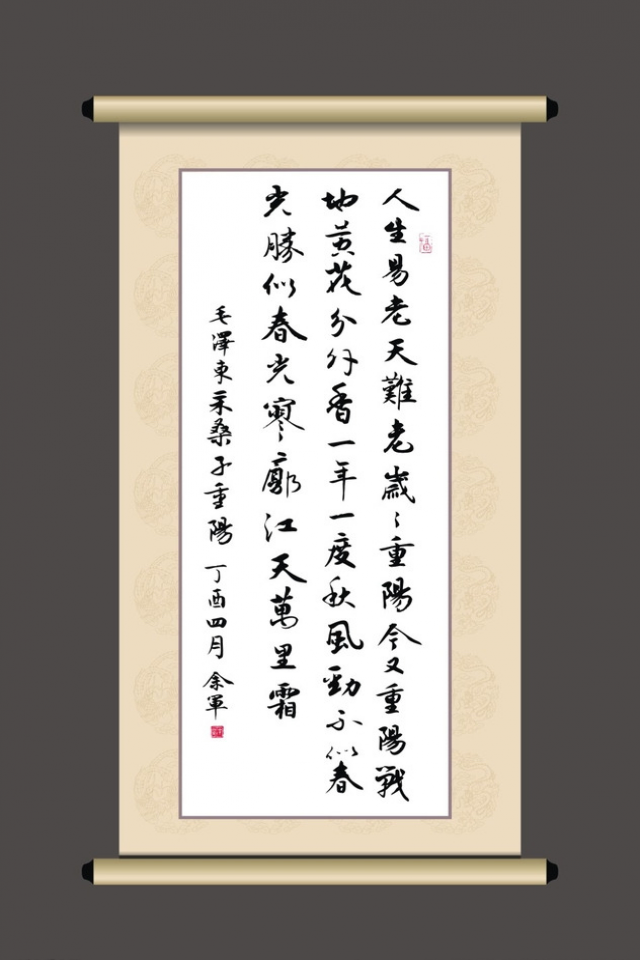 人生易老天難老歲〻重陽今又重陽戰
地黃花分外香一年一度秋風勁不似春
光勝似春光寥廓江天萬里霜
毛澤東采桑子重陽 丁酉四月 余軍